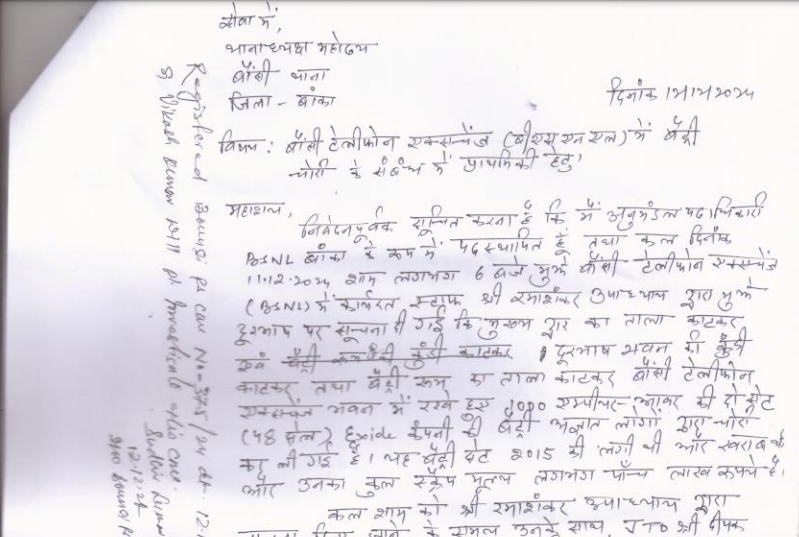 सेवा में,
थानाध्यक्ष महोदय
बौंसी थाना
जिला - बांका
दिनांक 12/12/2024
विषय : बौंसी टेलीफोन एक्सचेंज (बीएसएनएल) में बैट्री
चोरी के संबंध में प्राथमिकी हेतु।
महाशय,
निवेदनपूर्वक सूचित करना है कि मैं अनुमंडल पदाधिकारी
BSNL बांका के रूप में पदस्थापित हूँ तथा कल दिनांक
11.12.2024 शाम लगभग 6 बजे मुझे बौंसी टेलीफोन एक्सचेंज
(BSNL) में कार्यरत स्टाफ श्री रमाशंकर उपाध्याय द्वारा मुझे
दूरभाष पर सूचना दी गई कि मुख्य द्वार का ताला काटकर
एवं बैट्री रूम की कुंडी काटकर, दूरभाष भवन की कुंडी
काटकर तथा बैट्री रूम का ताला काटकर बौंसी टेलीफोन
एक्सचेंज भवन में रखे हुए 1000 एम्पीयर-आवर की दो सेट
(48 सेल), Exide कंपनी की बैट्री अज्ञात लोगों द्वारा चोरी
कर ली गई है। यह बैट्री सेट 2015 की लगी थी और खराब थे
और उनका कुल स्क्रैप मूल्य लगभग पाँच लाख रूपये है।
कल शाम को श्री रमाशंकर उपाध्याय द्वारा
जाने के समय उनके साथ, JTO श्री दीपक
Registered Bounsi PS case No-375/24 dt. 12.
SI Vikash Kumar will pl. investigate this case.
12.12.24
SHO Bounsi PS